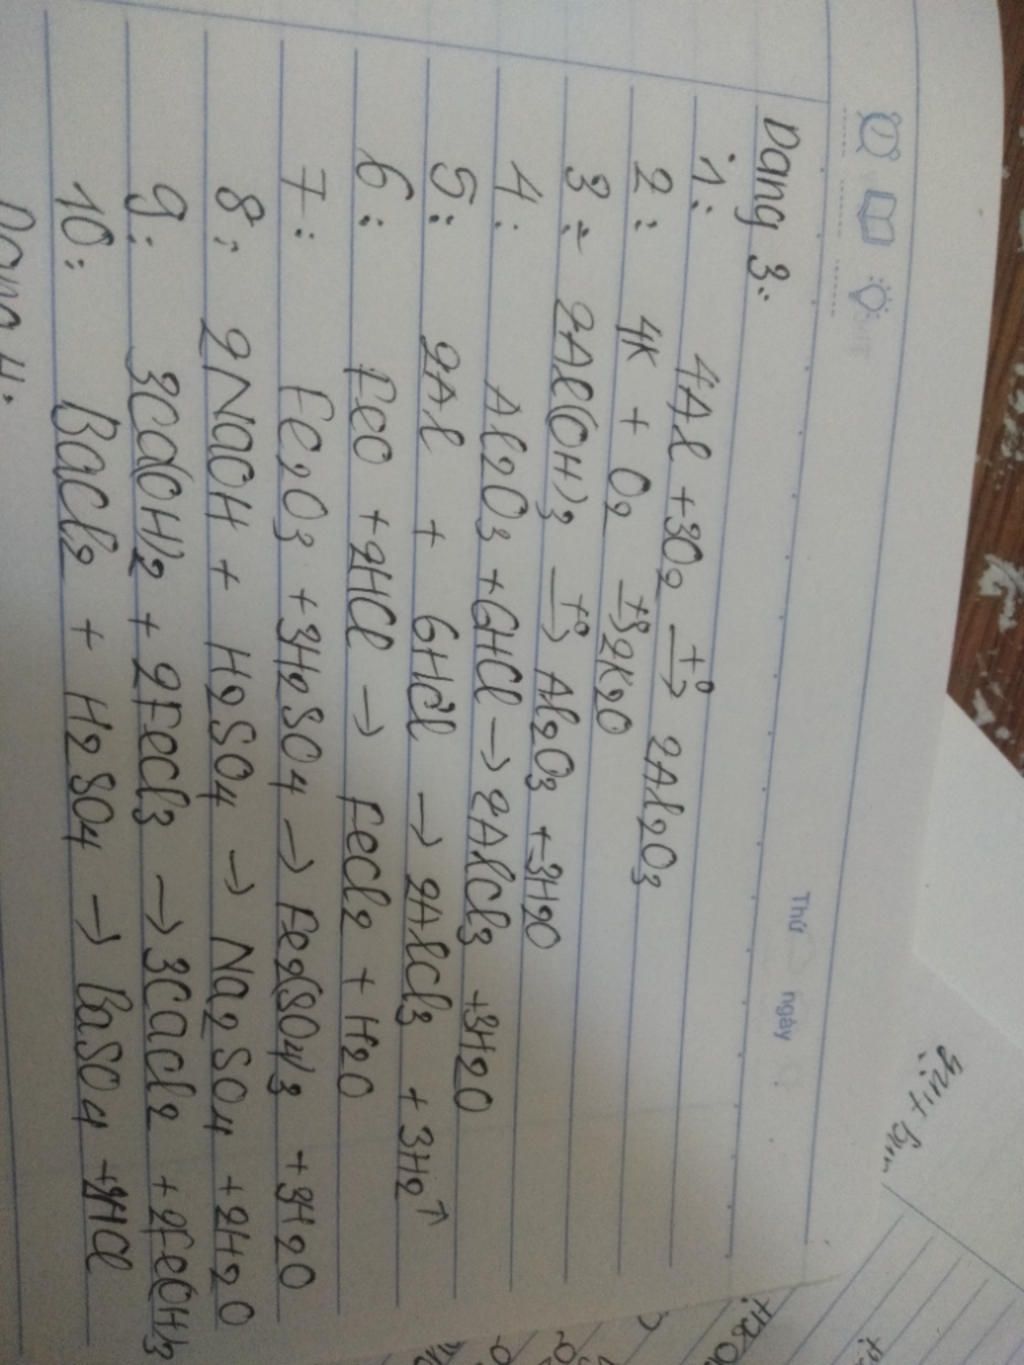 Thứ ngày
Dạng 3:
1: 4Al + 3O2 t° → 2Al2O3
2: 4K + O2 t° → 2K2O
3: 2Al(OH)3 t° → Al2O3 + 3H2O
4: Al2O3 + 6HCl → 2AlCl3 + 3H2O
5: 2Al + 6HCl → 2AlCl3 + 3H2 ↑
6: FeO + 2HCl → FeCl2 + H2O
7: Fe2O3 + 3H2SO4 → Fe2(SO4)3 + 3H2O
8: 2NaOH + H2SO4 → Na2SO4 + 2H2O
9: 3Ca(OH)2 + 2FeCl3 → 3CaCl2 + 2Fe(OH)3
10: BaCl2 + H2SO4 → BaSO4 + 2HCl